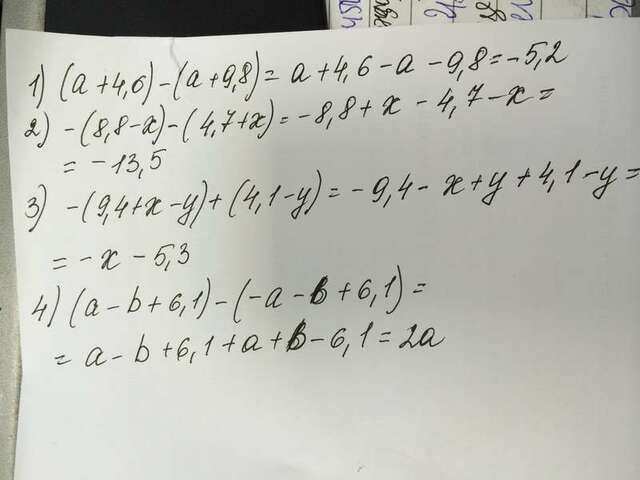 1) (a+4,6)-(a+9,8)= a+4,6-a-9,8=-5,2
2) -(8,8-x)-(4,7+x)=-8,8+x-4,7-x=
= -13,5
3) -(9,4+x-y)+(4,1-y)=-9,4-x+y+4,1-y=
= -x-5,3
4) (a-b+6,1)-(-a-b+6,1)=
= a-b+6,1+a+b-6,1=2a